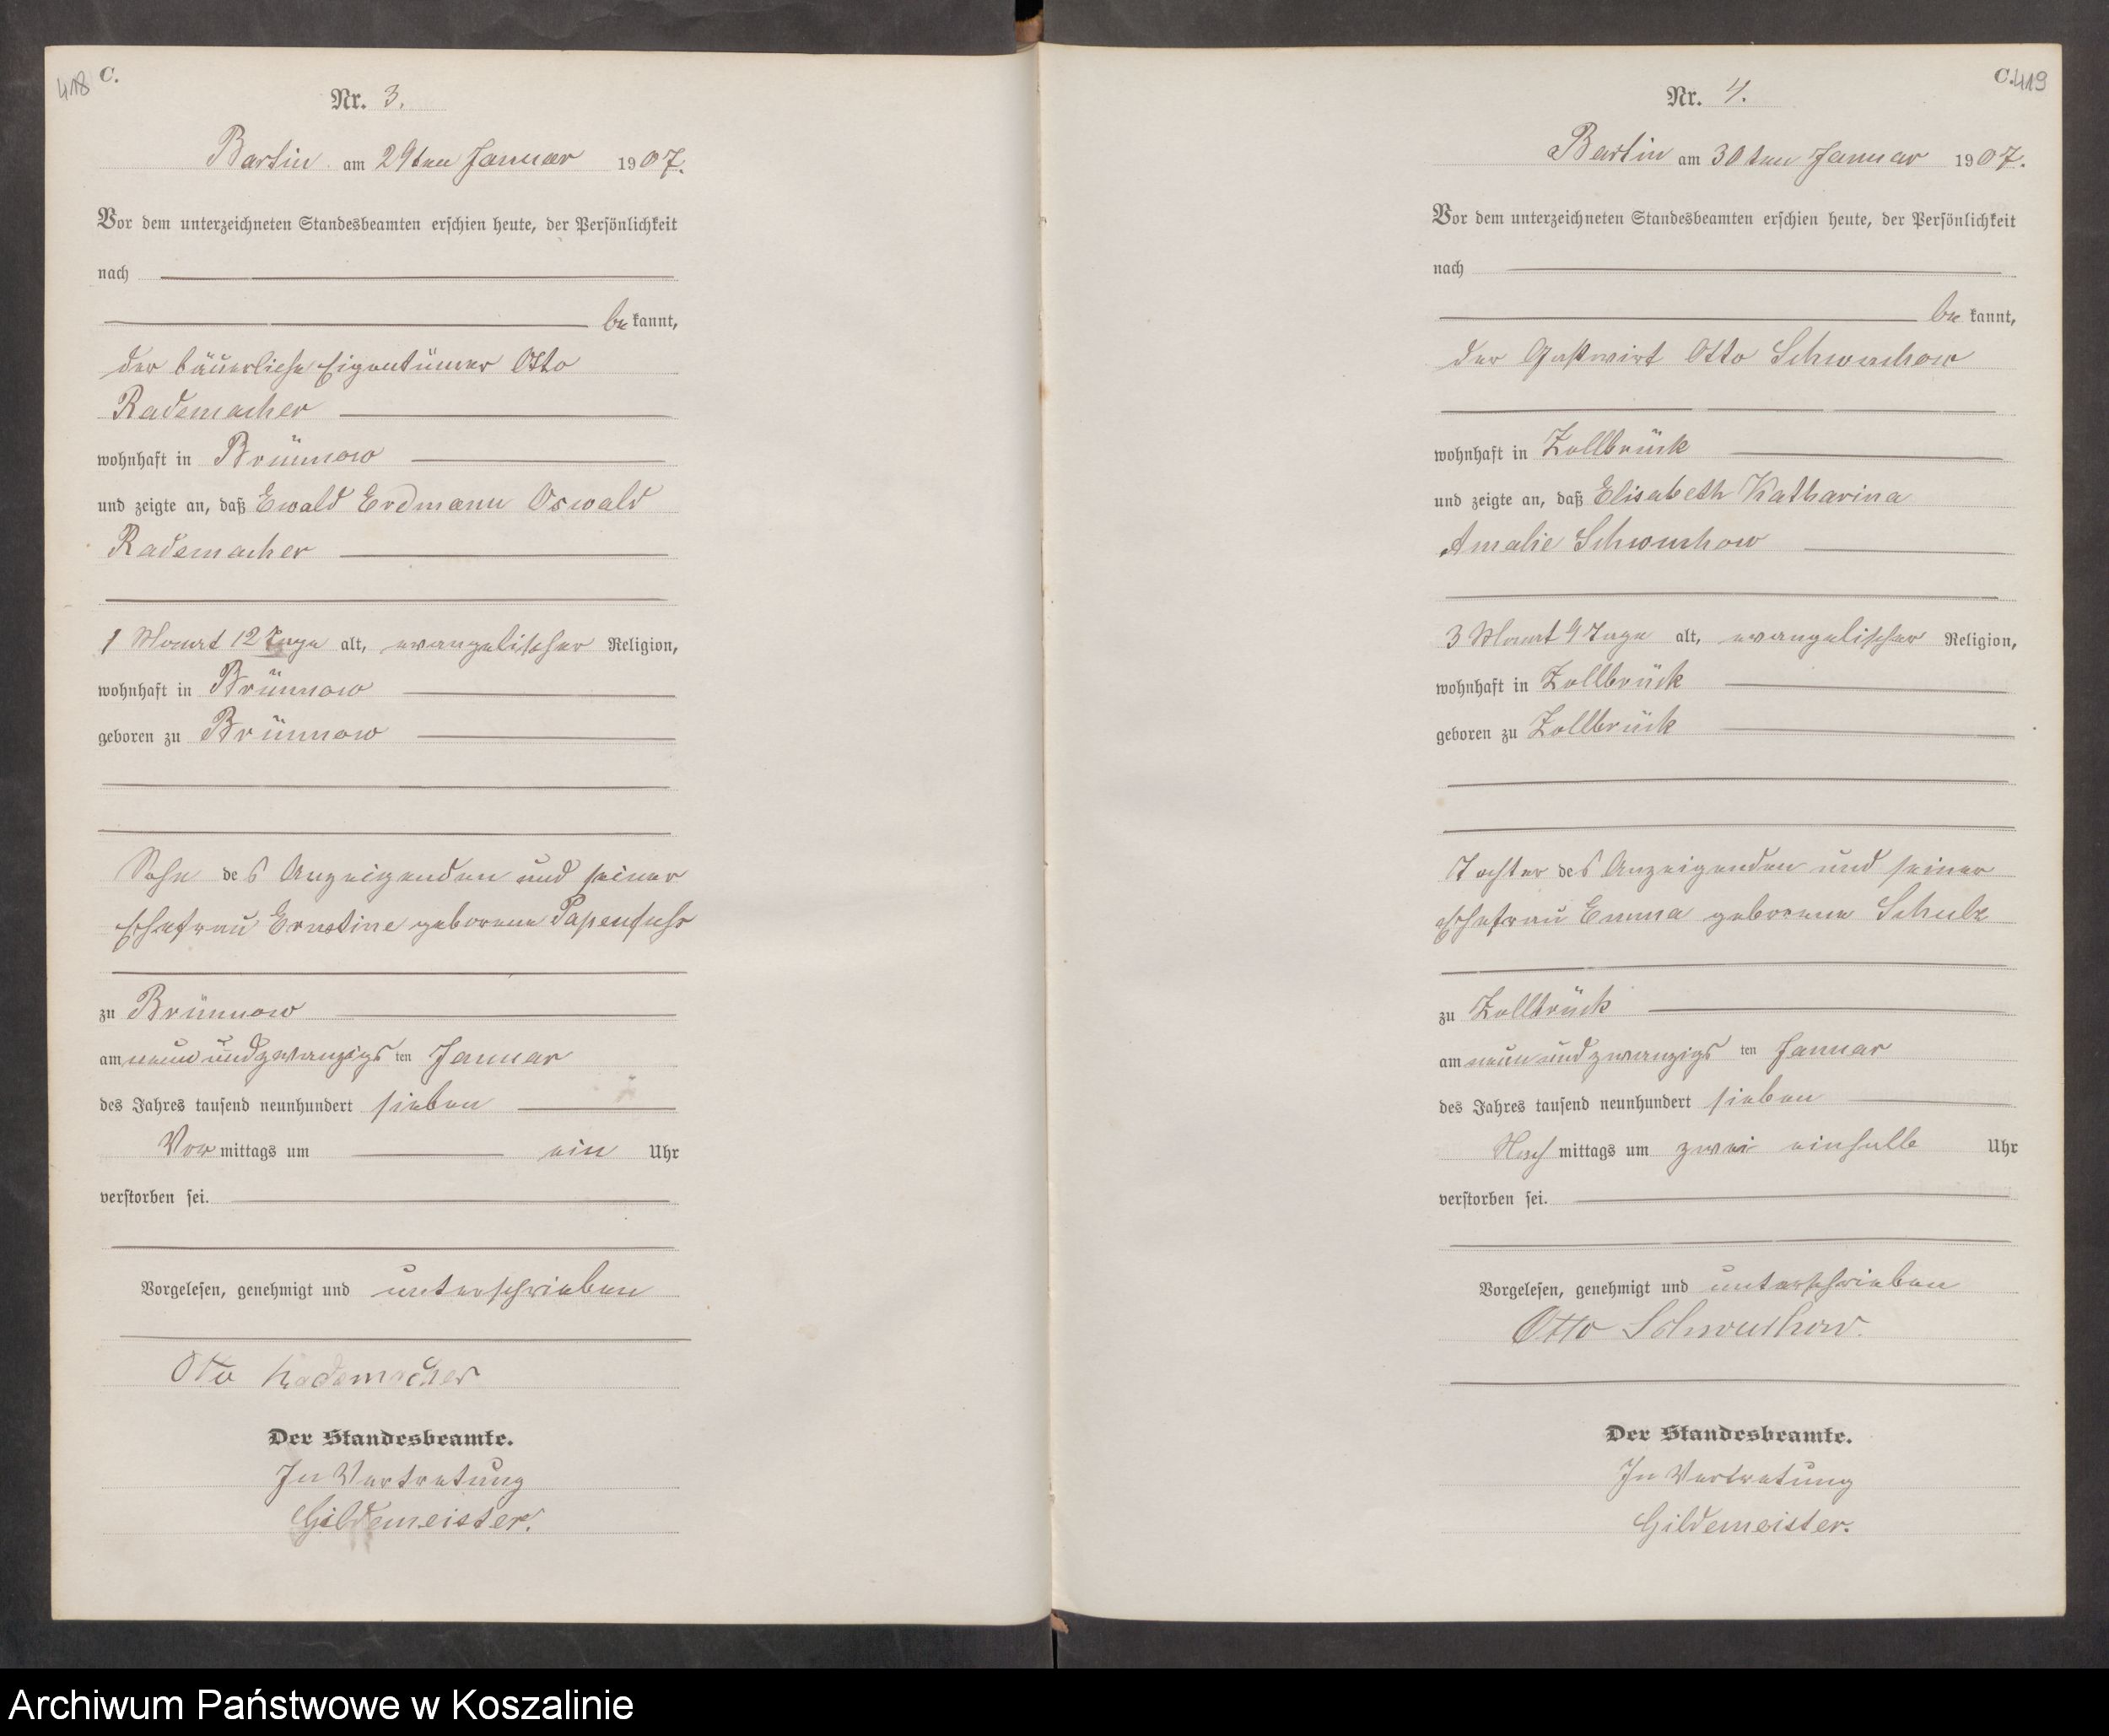 418 C.
Nr. 3.
Bartin am 29ten Januar 1907.
Vor dem unterzeichneten Standesbeamten erschien heute, der Persönlichkeit
nach
bekannt,
der bäuerliche Eigentümer Otto
Rademacher
wohnhaft in Brünnow
und zeigte an, daß Ewald Erdmann Oswald
Rademacher
1 Monat 12 Tage alt, evangelischer Religion,
wohnhaft in Brünnow
geboren zu Brünnow
Sohn des Anzeigenden und seiner
Ehefrau Ernstine geborene Papenfuhs
zu Brünnow
am neunundzwanzigsten Januar
des Jahres tausend neunhundert sieben
Vormittags um ein Uhr
verstorben sei.
Vorgelesen, genehmigt und unterschrieben
Otto Rademacher
Der Standesbeamte.
In Vertretung
Gildemeister.
C. 419
Nr. 4.
Bartin am 30ten Januar 1907.
Vor dem unterzeichneten Standesbeamten erschien heute, der Persönlichkeit
nach
bekannt,
der Gastwirt Otto Schwuchow
wohnhaft in Zollbrück
und zeigte an, daß Elisabeth Katharina
Amalie Schwuchow
3 Monat 9 Tage alt, evangelischer Religion,
wohnhaft in Zollbrück
geboren zu Zollbrück
Tochter des Anzeigenden und seiner
Ehefrau Emma geborene Schulz
zu Zollbrück
am neunundzwanzigsten Januar
des Jahres tausend neunhundert sieben
Nachmittags um zwei einhalb Uhr
verstorben sei.
Vorgelesen, genehmigt und unterschrieben
Otto Schwuchow.
Der Standesbeamte.
In Vertretung
Gildemeister.
Archiwum Państwowe w Koszalinie